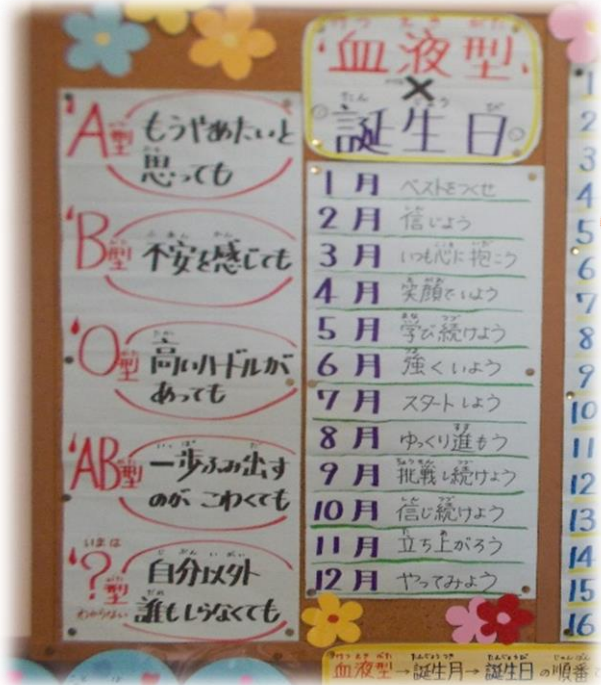 血液型
×
誕生日
A型
もうやめたいと
思っても
B型
不安を感じても
O型
高いハードルが
あっても
AB型
一歩ふみ出す
のが こわくても
いまは
?型
わからない
自分以外
誰もしらなくても
1月 ベストをつくせ
2月 信じよう
3月 いつも心に抱こう
4月 笑顔でいよう
5月 学び続けよう
6月 強くいよう
7月 スタートしよう
8月 ゆっくり進もう
9月 挑戦し続けよう
10月 信じ続けよう
11月 立ち上がろう
12月 やってみよう
1
2
3
4
5
6
7
8
9
10
11
12
13
14
15
16
血液型→誕生月→誕生日の順番